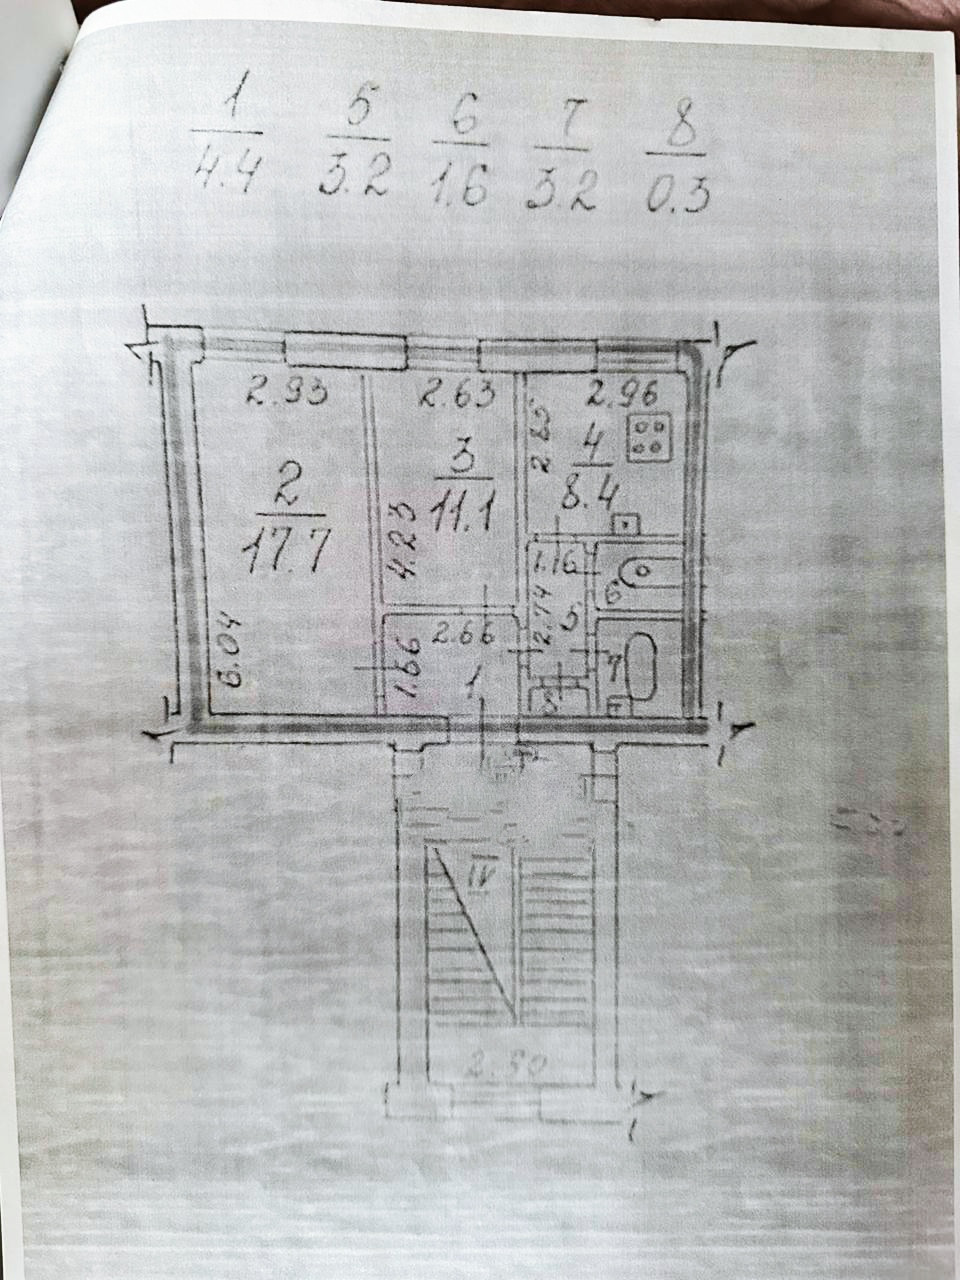 1 5 6 7 8
4.4 3.2 1.6 3.2 0.3
2.93 2.63 2.96
2.85
3 4
2 11.1 8.4
17.7 4.23
1.16
6
2.74 5
6.04 1.66 2.66
7
1 8
IV
2.50